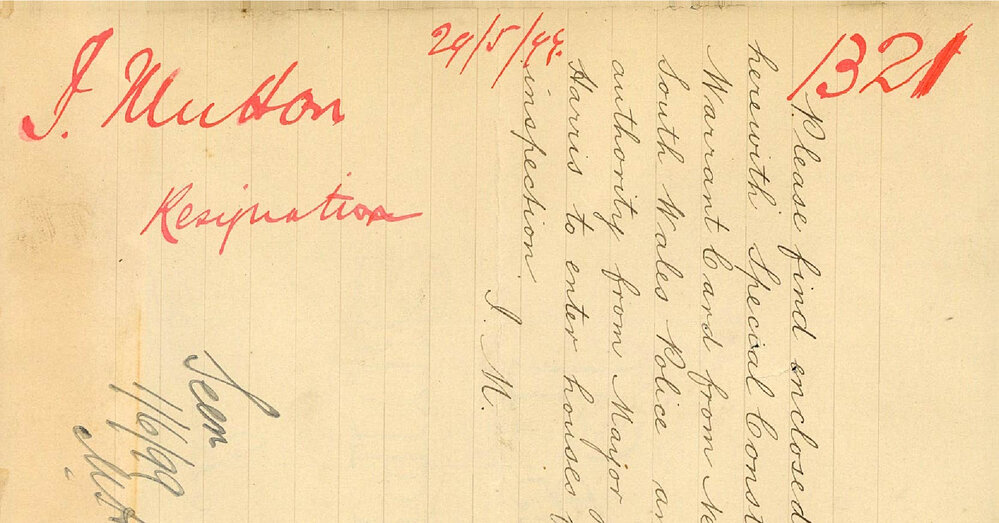 J. Mutton
Resignation
29/5/99.
1321
Please find enclosed
herewith Special Const
Warrant Card from Ne
South Wales Police an
authority from Mayor
Harris to enter houses
inspection.
J. M.
Seen
1/6/99